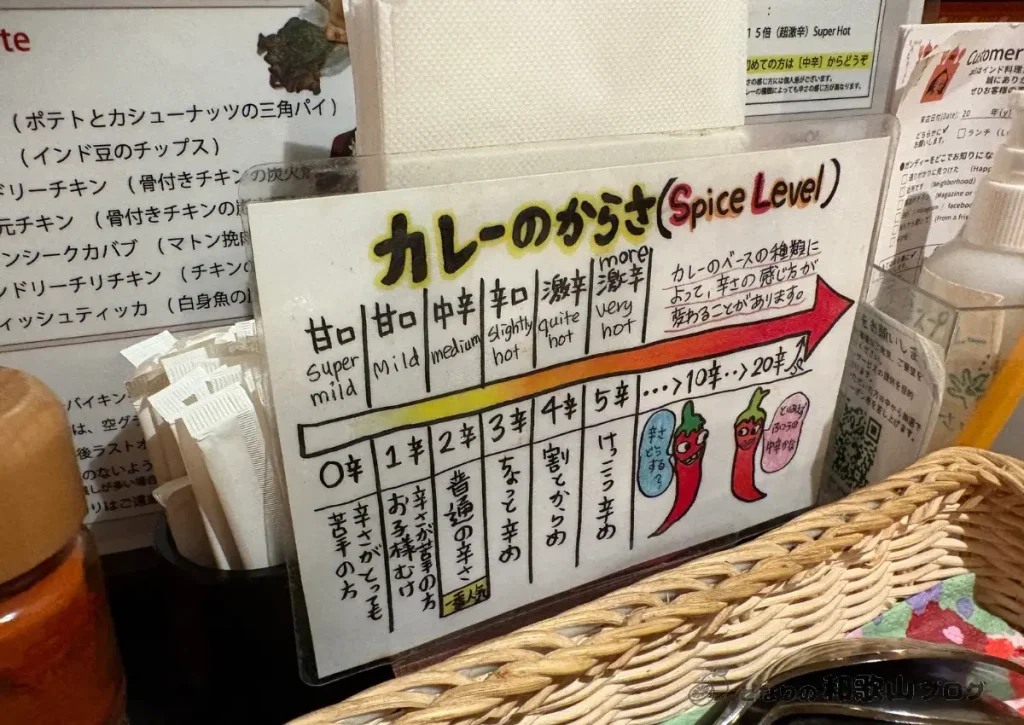 te
(ポテトとカシューナッツの三角パイ)
(インド豆のチップス)
ドリーチキン (骨付きチキンの炭火
元チキン (骨付きチキンの
ンシークカバブ (マトン挽
ンドリーチリチキン (チキンの
ィッシュティッカ (白身魚の
バイキン
は、空グ
後ラストオ
のないよう
15倍(超激辛) Super Hot
めての方は[中辛]からどうぞ
Customer
はインド料理
誠にあり
ぜひお客様の
来店日付(Date): 20 年(y)
どちらかに✓
お願いします。
ランチ
カレーのからさ(Spice Level)
カレーのベースの種類に
よって、辛さの感じ方が
変わることがあります。
甘口
super
mild
甘口
Mild
中辛
medium
辛口
slightly
hot
激辛
quite
hot
more
激辛
very
hot
0辛
1辛
2辛
3辛
4辛
5辛
…>10辛‥>20辛
辛さがとっても
苦手の方
辛さが苦手の方
お子様むけ
普通の辛さ
一番人気
ちょっと辛め
割とからめ
けっこう辛め
辛さ
どう
する?
とりあえず
ふつうの
中辛かな
お願いしま
となりの和歌山ブログ